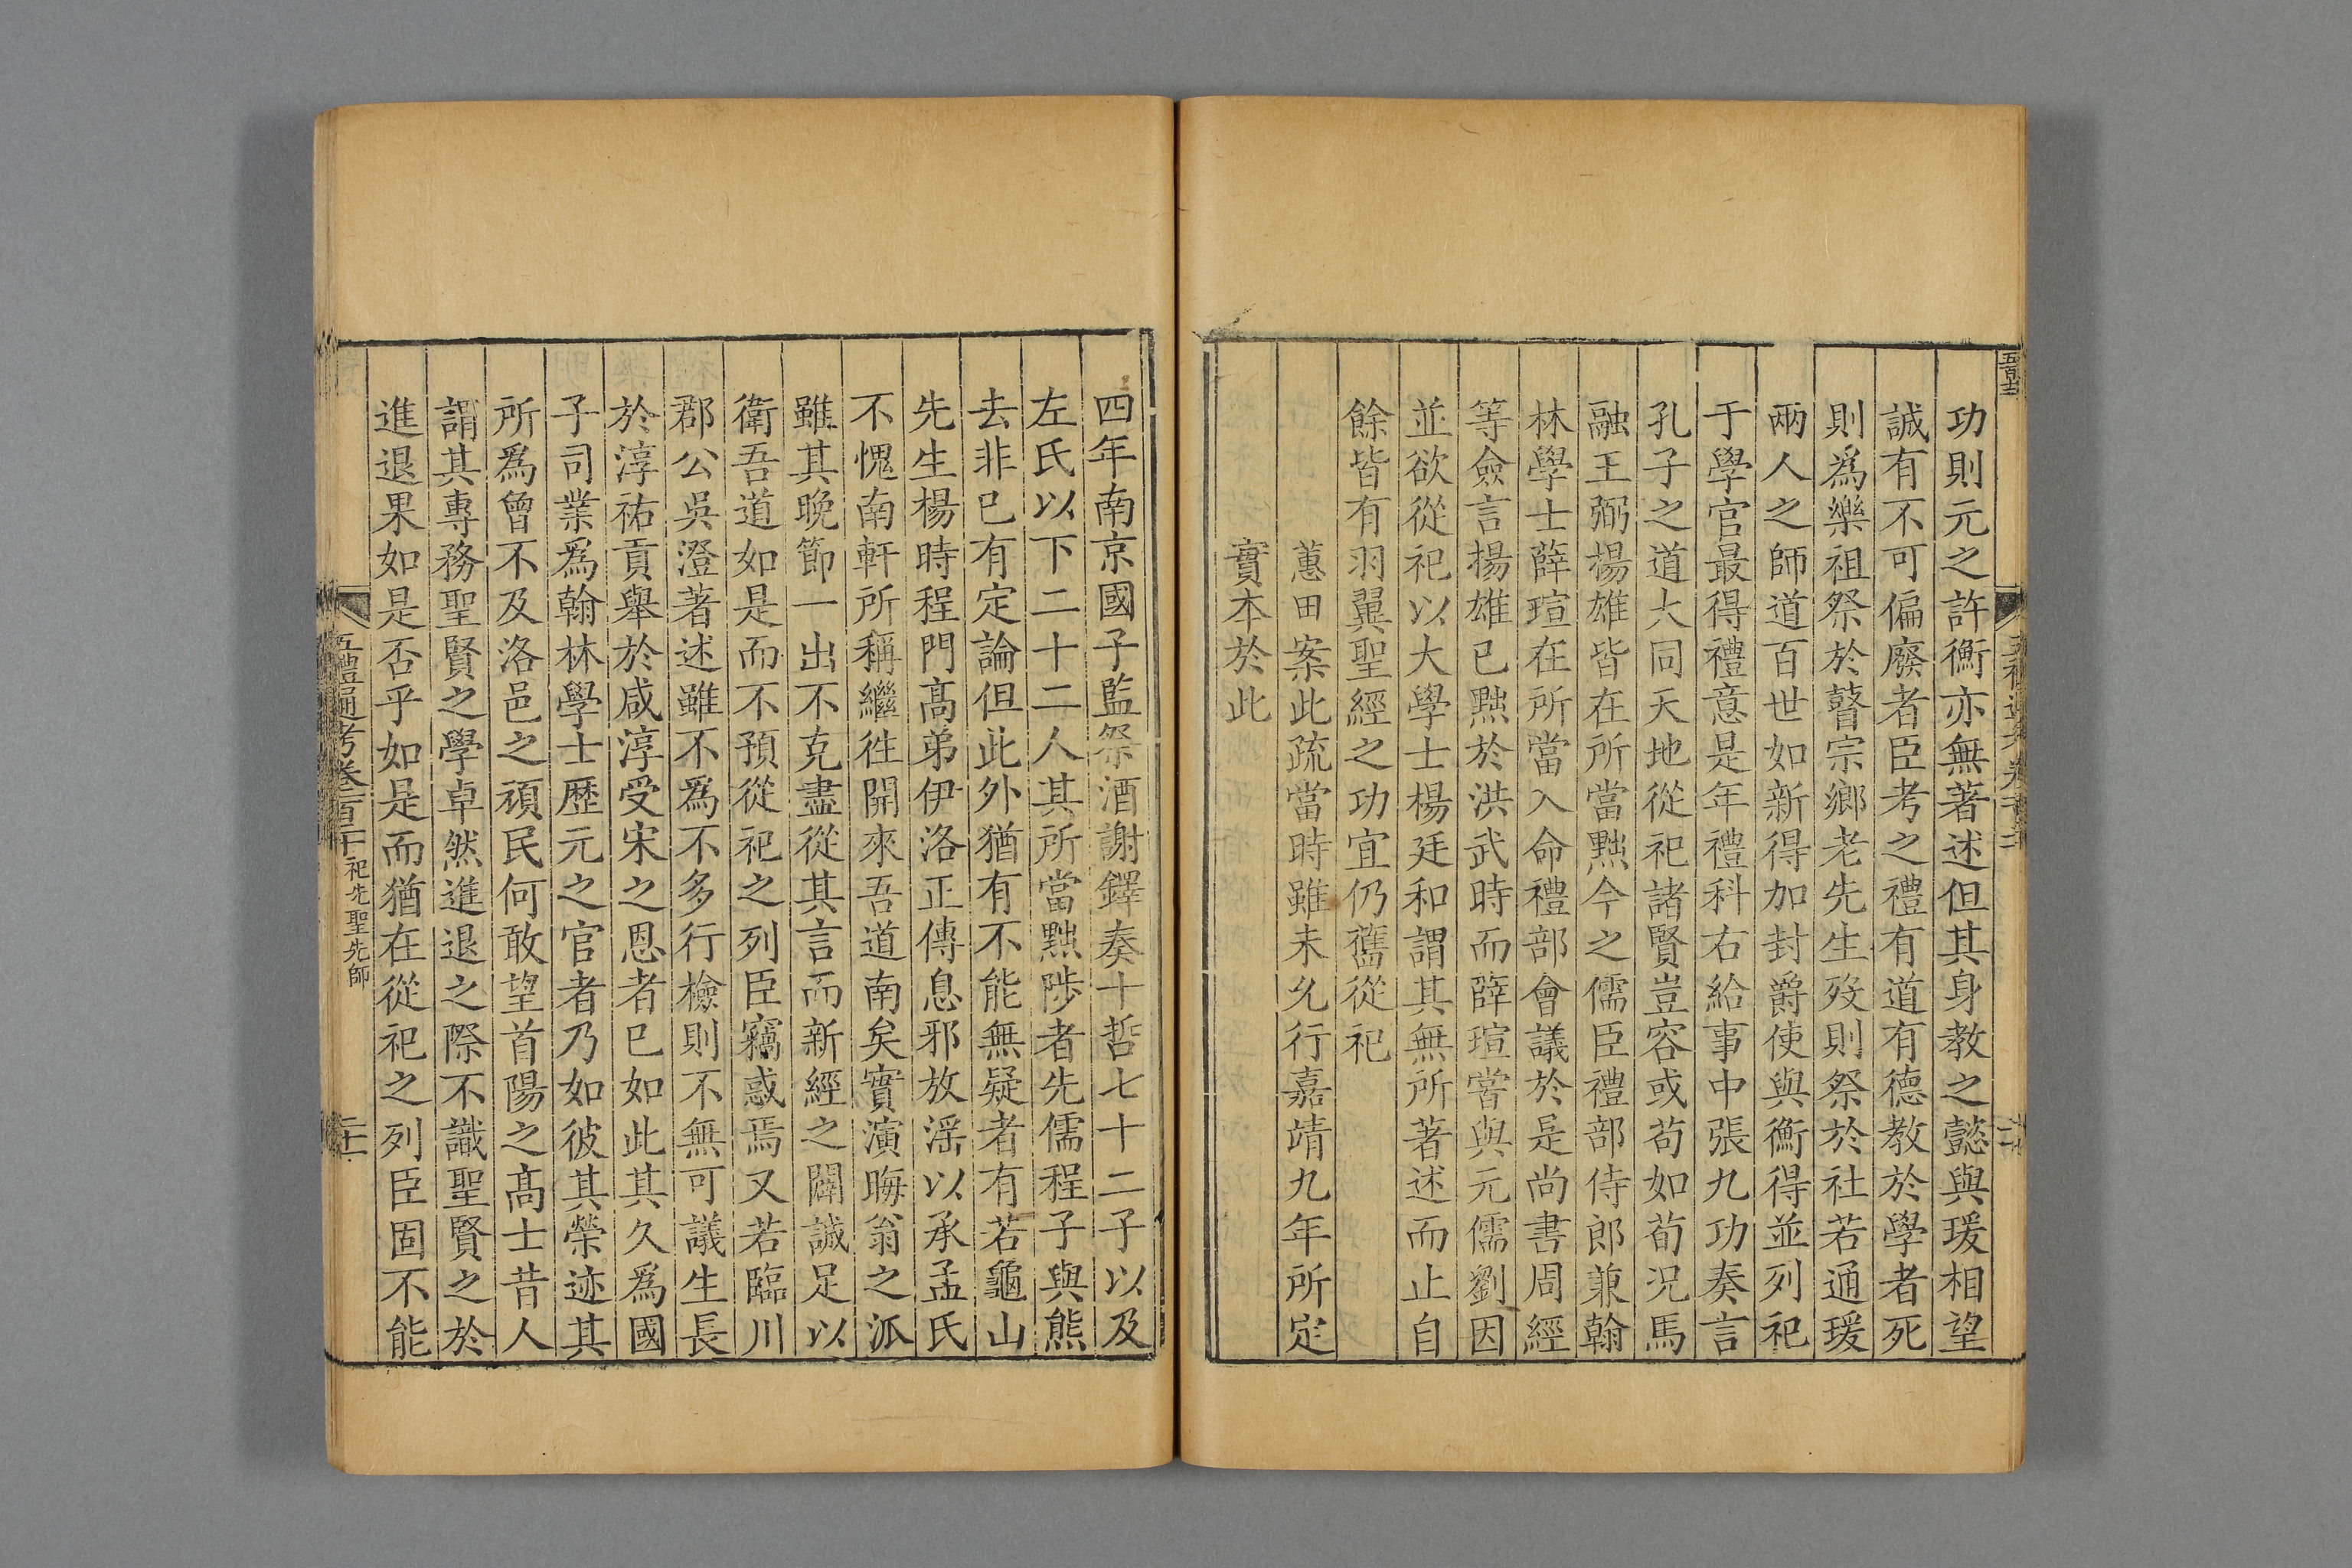 功則元之許衡亦無著述但其身教之懿與瑗相望
誠有不可偏廢者臣考之禮有道有德教於學者死
則爲樂祖祭於瞽宗鄉老先生歿則祭於社若通瑗
兩人之師道百世如新得加封爵使與衡得並列祀
于學官最得禮意是年禮科右給事中張九功奏言
孔子之道大同天地從祀諸賢豈容或苟如荀況馬
融王弼楊雄皆在所當黜今之儒臣禮部侍郎兼翰
林學士薛瑄在所當入命禮部會議於是尚書周經
等僉言揚雄已黜於洪武時而薛瑄嘗與元儒劉因
並欲從祀以大學士楊廷和謂其無所著述而止自
餘皆有羽翼聖經之功宜仍舊從祀
蕙田案此疏當時雖未允行嘉靖九年所定
實本於此
四年南京國子監祭酒謝鐸奏十哲七十二子以及
左氏以下二十二人其所當黜陟者先儒程子與熊
去非已有定論但此外猶有不能無疑者有若龜山
先生楊時程門高弟伊洛正傳息邪放滛以承孟氏
不愧南軒所稱繼徃開來吾道南矣實演晦翁之派
雖其晚節一出不克盡從其言而新經之闢誠足以
衛吾道如是而不預從祀之列臣竊惑焉又若臨川
郡公吳澄著述雖不爲不多行檢則不無可議生長
於淳祐貢舉於咸淳受宋之恩者已如此其久爲國
子司業爲翰林學士歷元之官者乃如彼其榮迹其
所爲曾不及洛邑之頑民何敢望首陽之高士昔人
謂其專務聖賢之學卓然進退之際不識聖賢之於
進退果如是否乎如是而猶在從祀之列臣固不能
五禮通考卷一百二十 祀先聖先師